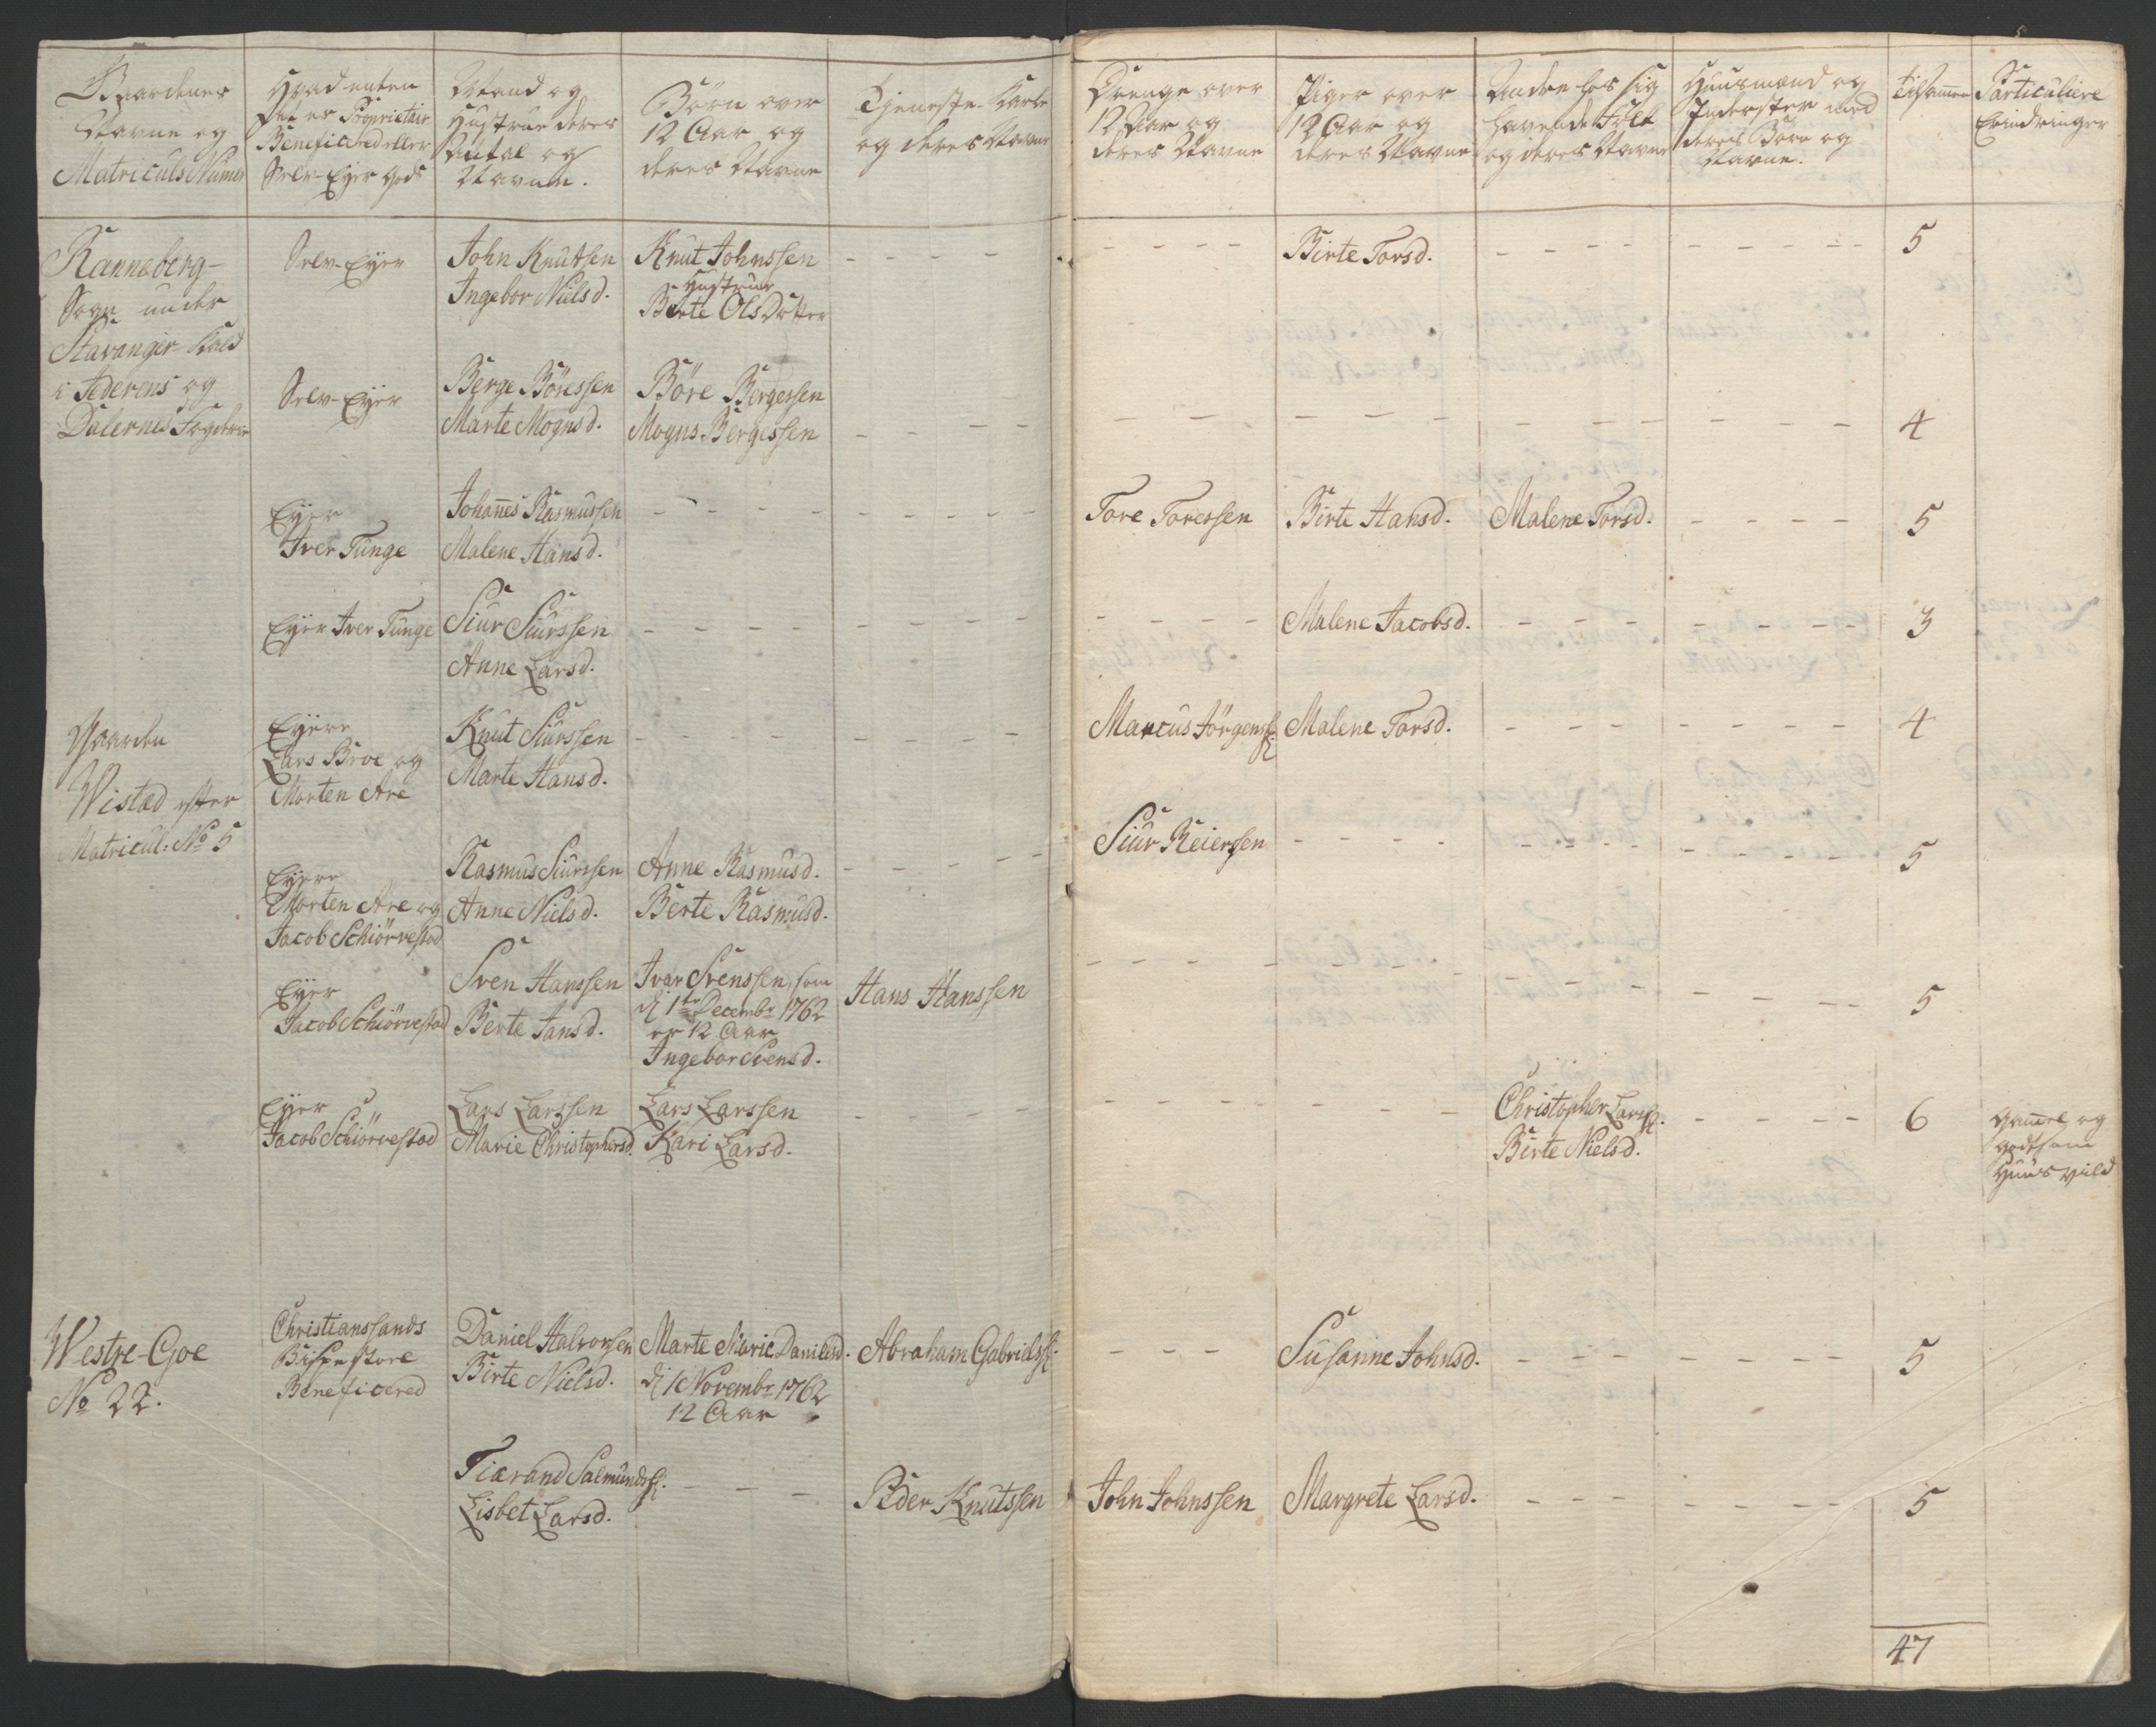 Gaardenes
Navne og
Matriculs Numer
Hvad enten
det er Proprietair
Beneficered eller
Selv-Eyer Gods
Mænd og
Hustruer deres
Antal og
Navne.
Börn over
12 Aar og
deres Navne
Tjeneste-Karle
og deres Navne
Drenge over
12 Aar og
deres Navne
Piger over
12 Aar og
deres Navne
Andre hos sig
havende Folk
og deres Navne
Huusmænd og
Inderster med
deres Börn og
Navne.
tilsammen
Particuliere
Erindringer
Ranneberg-
Sogn under
Stavanger Kald
i Jederens og
Dalernes Fogderie
Selv-Eyer
John Knutsen
Ingebor Nielsd.
Knut Johnssen
Hustrue
Birte Ols Dotter
Birte Torsd.
5
Selv-Eyer
Berge Böressen
Marte Mognsd.
Böre Bergessen
Mogns Bergessen
4
Eyer
Iver Tunge
Johañes Rasmussen
Malene Hansd.
Tore Toressen
Birte Hansd.
Malene Torsd.
5
Eyer Iver Tunge
Siur Siurssen
Anne Larsd.
Malene Jacobsd.
3
Gaarden
Wistad efter
Matricul: No 5
Eyere
Lars Broe og
Morten Are
Knut Siurssen
Marte Hansd.
Marcus Jörgenss:
Malene Torsd.
4
Eyere
Morten Are og
Jacob Schiörvestad
Rasmus Siurssen
Anne Nielsd.
Anne Rasmusd.
Berte Rasmusd.
Siur Reiersen
5
Eyer
Jacob Schiörvestad
Sven Hanssen
Berte Jansd.
Ivar Svenssen, som
d: 1te Decembr 1762
er 12 Aar
Ingebor Svensd.
Hans Hanssen
5
Eyer
Jacob Schiörvestad
Lars Larssen
Marie Christophersd.
Lars Larssen
Kari Larsd.
Christopher Larss:
Birte Nielsd.
6
Gamel og
huusvild
Westre-Goe
No 22.
Christianssands
Bispestoel
Beneficered
Daniel Halvorsen
Birte Nielsd.
Marte Marie Danielsd.
d: 1 Novembr 1762
12 Aar
Abraham Gabrielss:
Susanne Johnsd.
5
Tiærand Salmundss:
Lisbet Larsd.
Peder Knutssen
John Johnssen
Margrete Larsd.
5
47